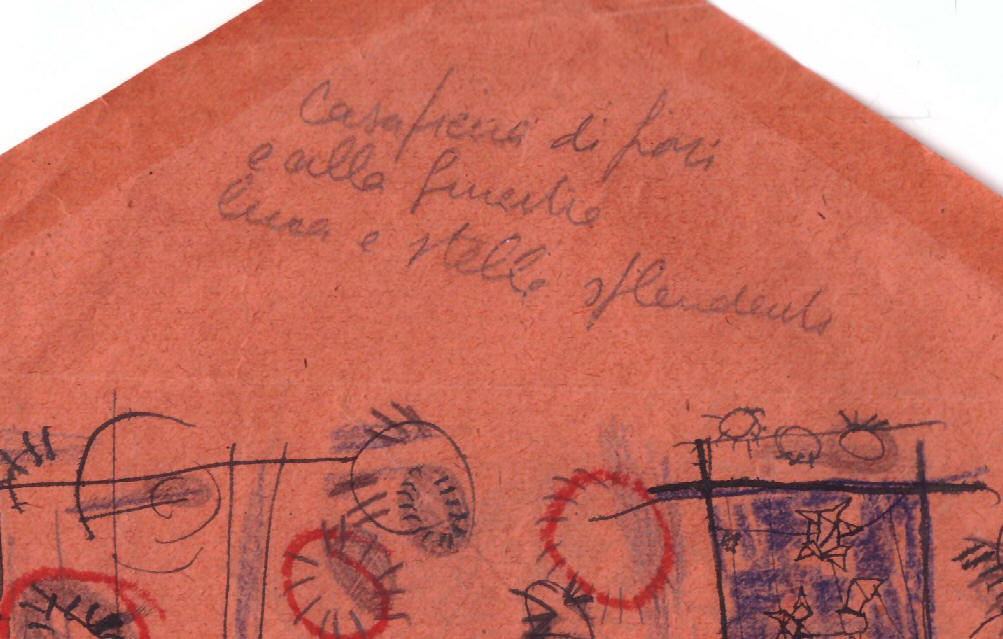 Casa piena di fiori
e alla finestra
luna e stelle splendenti